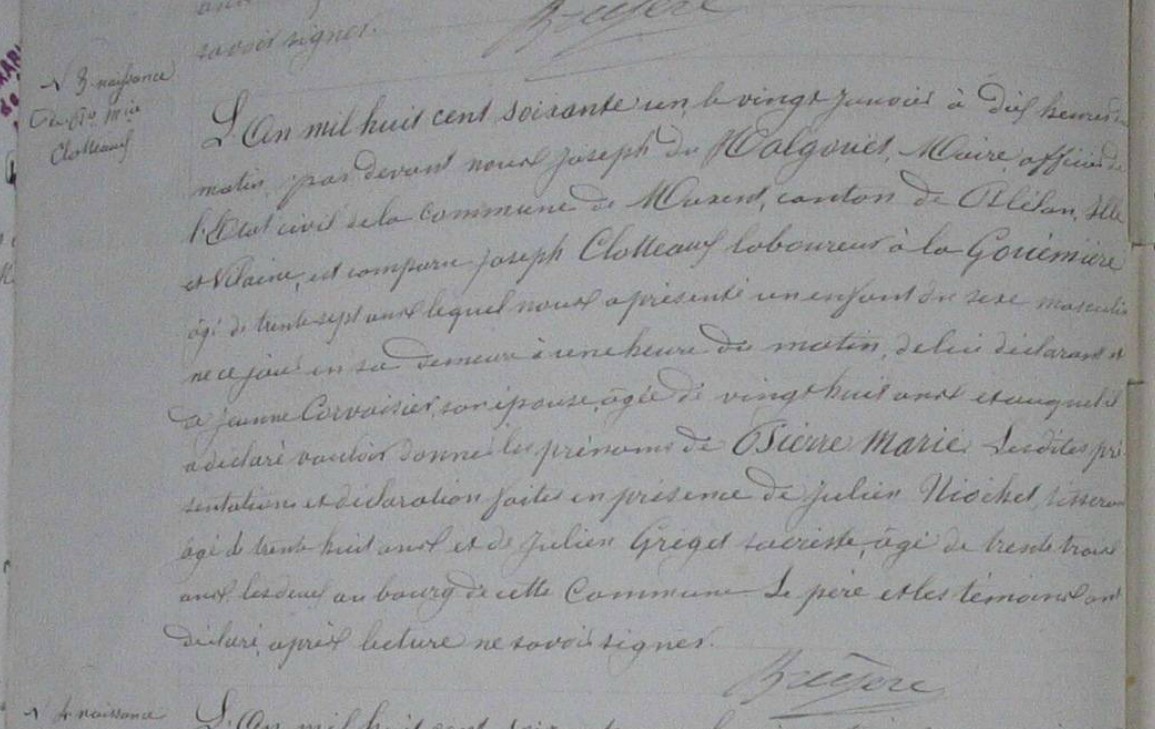 savoir signer.
N 3 naissance
de P.re M.ie
Clotteaux
L'An mil huit cent soixante un, le vingt Janvier à dix heures du
matin, par devant nous Joseph du Halgouët, Maire officier de
l'Etat civil de la Commune de Maxent, canton de Plélan, Ille
et Vilaine, est comparu Joseph Clotteaux laboureur à la Gouémière
âgé de trente sept ans lequel nous a présenté un enfant du sexe masculin
né ce jour en sa demeure à une heure du matin, de lui déclarant et
de Jeanne Corvaisier, son épouse, âgée de vingt huit ans et auquel il
a déclaré vouloir donner les prénoms de Pierre Marie. Lesdites pré
sentation et déclaration faites en présence de Julien Niochet, tisserand
âgé de trente huit ans et de Julien Gréget sacriste, âgé de trente trois
ans, les deux au bourg de cette Commune Le père et les témoins ont
déclaré, après lecture ne savoir signer.
N 4 naissance
L'An mil huit cent soixante